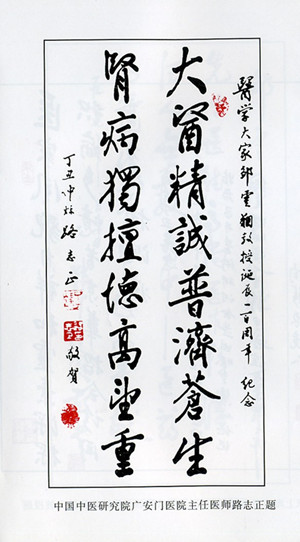 醫学大家邹雲翔教授诞辰一百周年 纪念
大醫精誠普濟蒼生
腎病獨擅德高望重
丁丑仲秋路志正
敬賀
中国中医研究院广安门医院主任医师路志正题